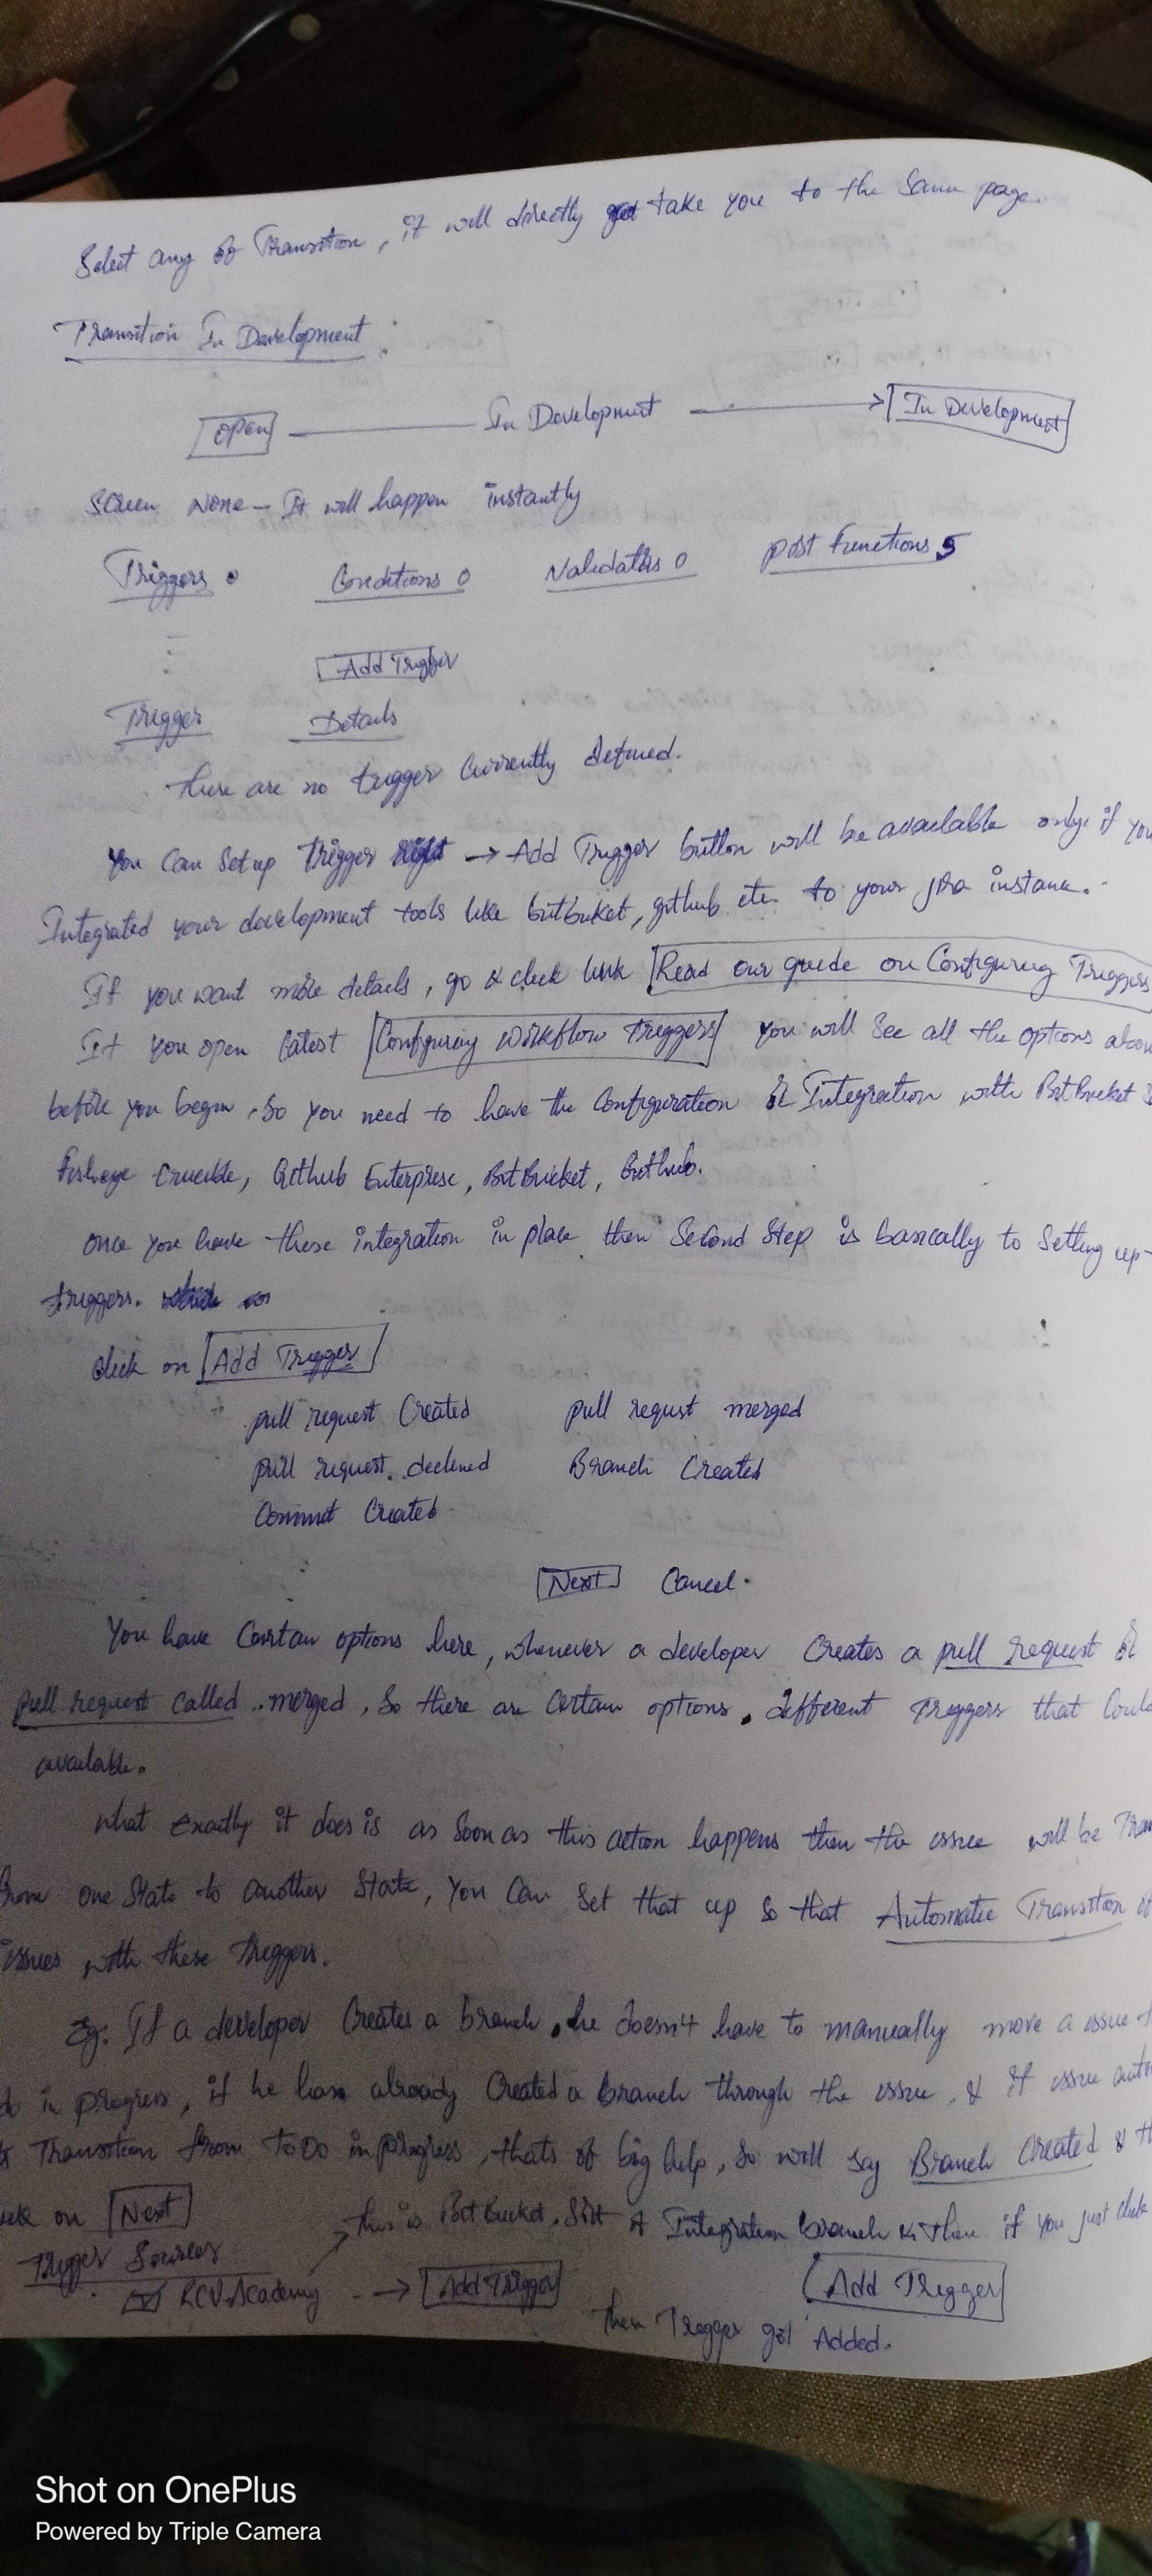 Select any of Transition, it will directly take you to the Same page.
Transition In Development :
OPEN In Development In Development
Screen None - It will happen instantly
Triggers 0 Conditions 0 Validators 0 post Functions 5
Add Trigger
Trigger Details
there are no trigger Currently defined.
You Can Setup Trigger → Add Trigger button will be available only if you
Integrated your development tools like bitbuket, github etc. to your jira instance.
If you want more details, go & click link Read our guide on Configuring Triggers
If you open latest Configuring Workflow Triggers you will See all the options
before you begin, So you need to have the Configuration & Integration with BitBucket
Fisheye Crucible, Github Enterprise, BitBucket, Github.
once you have these integration in place then Second Step is basically to Setting up
triggers.
click on Add Trigger
pull request Created pull requst merged
pull request declined Branch Created
Commit Created
Next Cancel.
You have Certain options here, whenever a developer Creates a pull request
pull request called merged, So there are Certain options, different Triggers that
available.
What Exactly it does is as Soon as this action happens then the issue will be
from one State to another State, You Can Set that up so that Automatic Transition of
issues with these Triggers.
Eg. If a developer Creates a branch, he doesn't have to manually move a issue
in progress, if he has already Created a branch through the issue, & if issue
Transition from ToDo in progress, thats of big help, So will say Branch Created &
on Next this is BitBucket, Integration branch & then if you just click
Trigger Sources
RCVAcademy → Add Trigger Add Trigger
then Trigger got Added.
Shot on OnePlus
Powered by Triple Camera